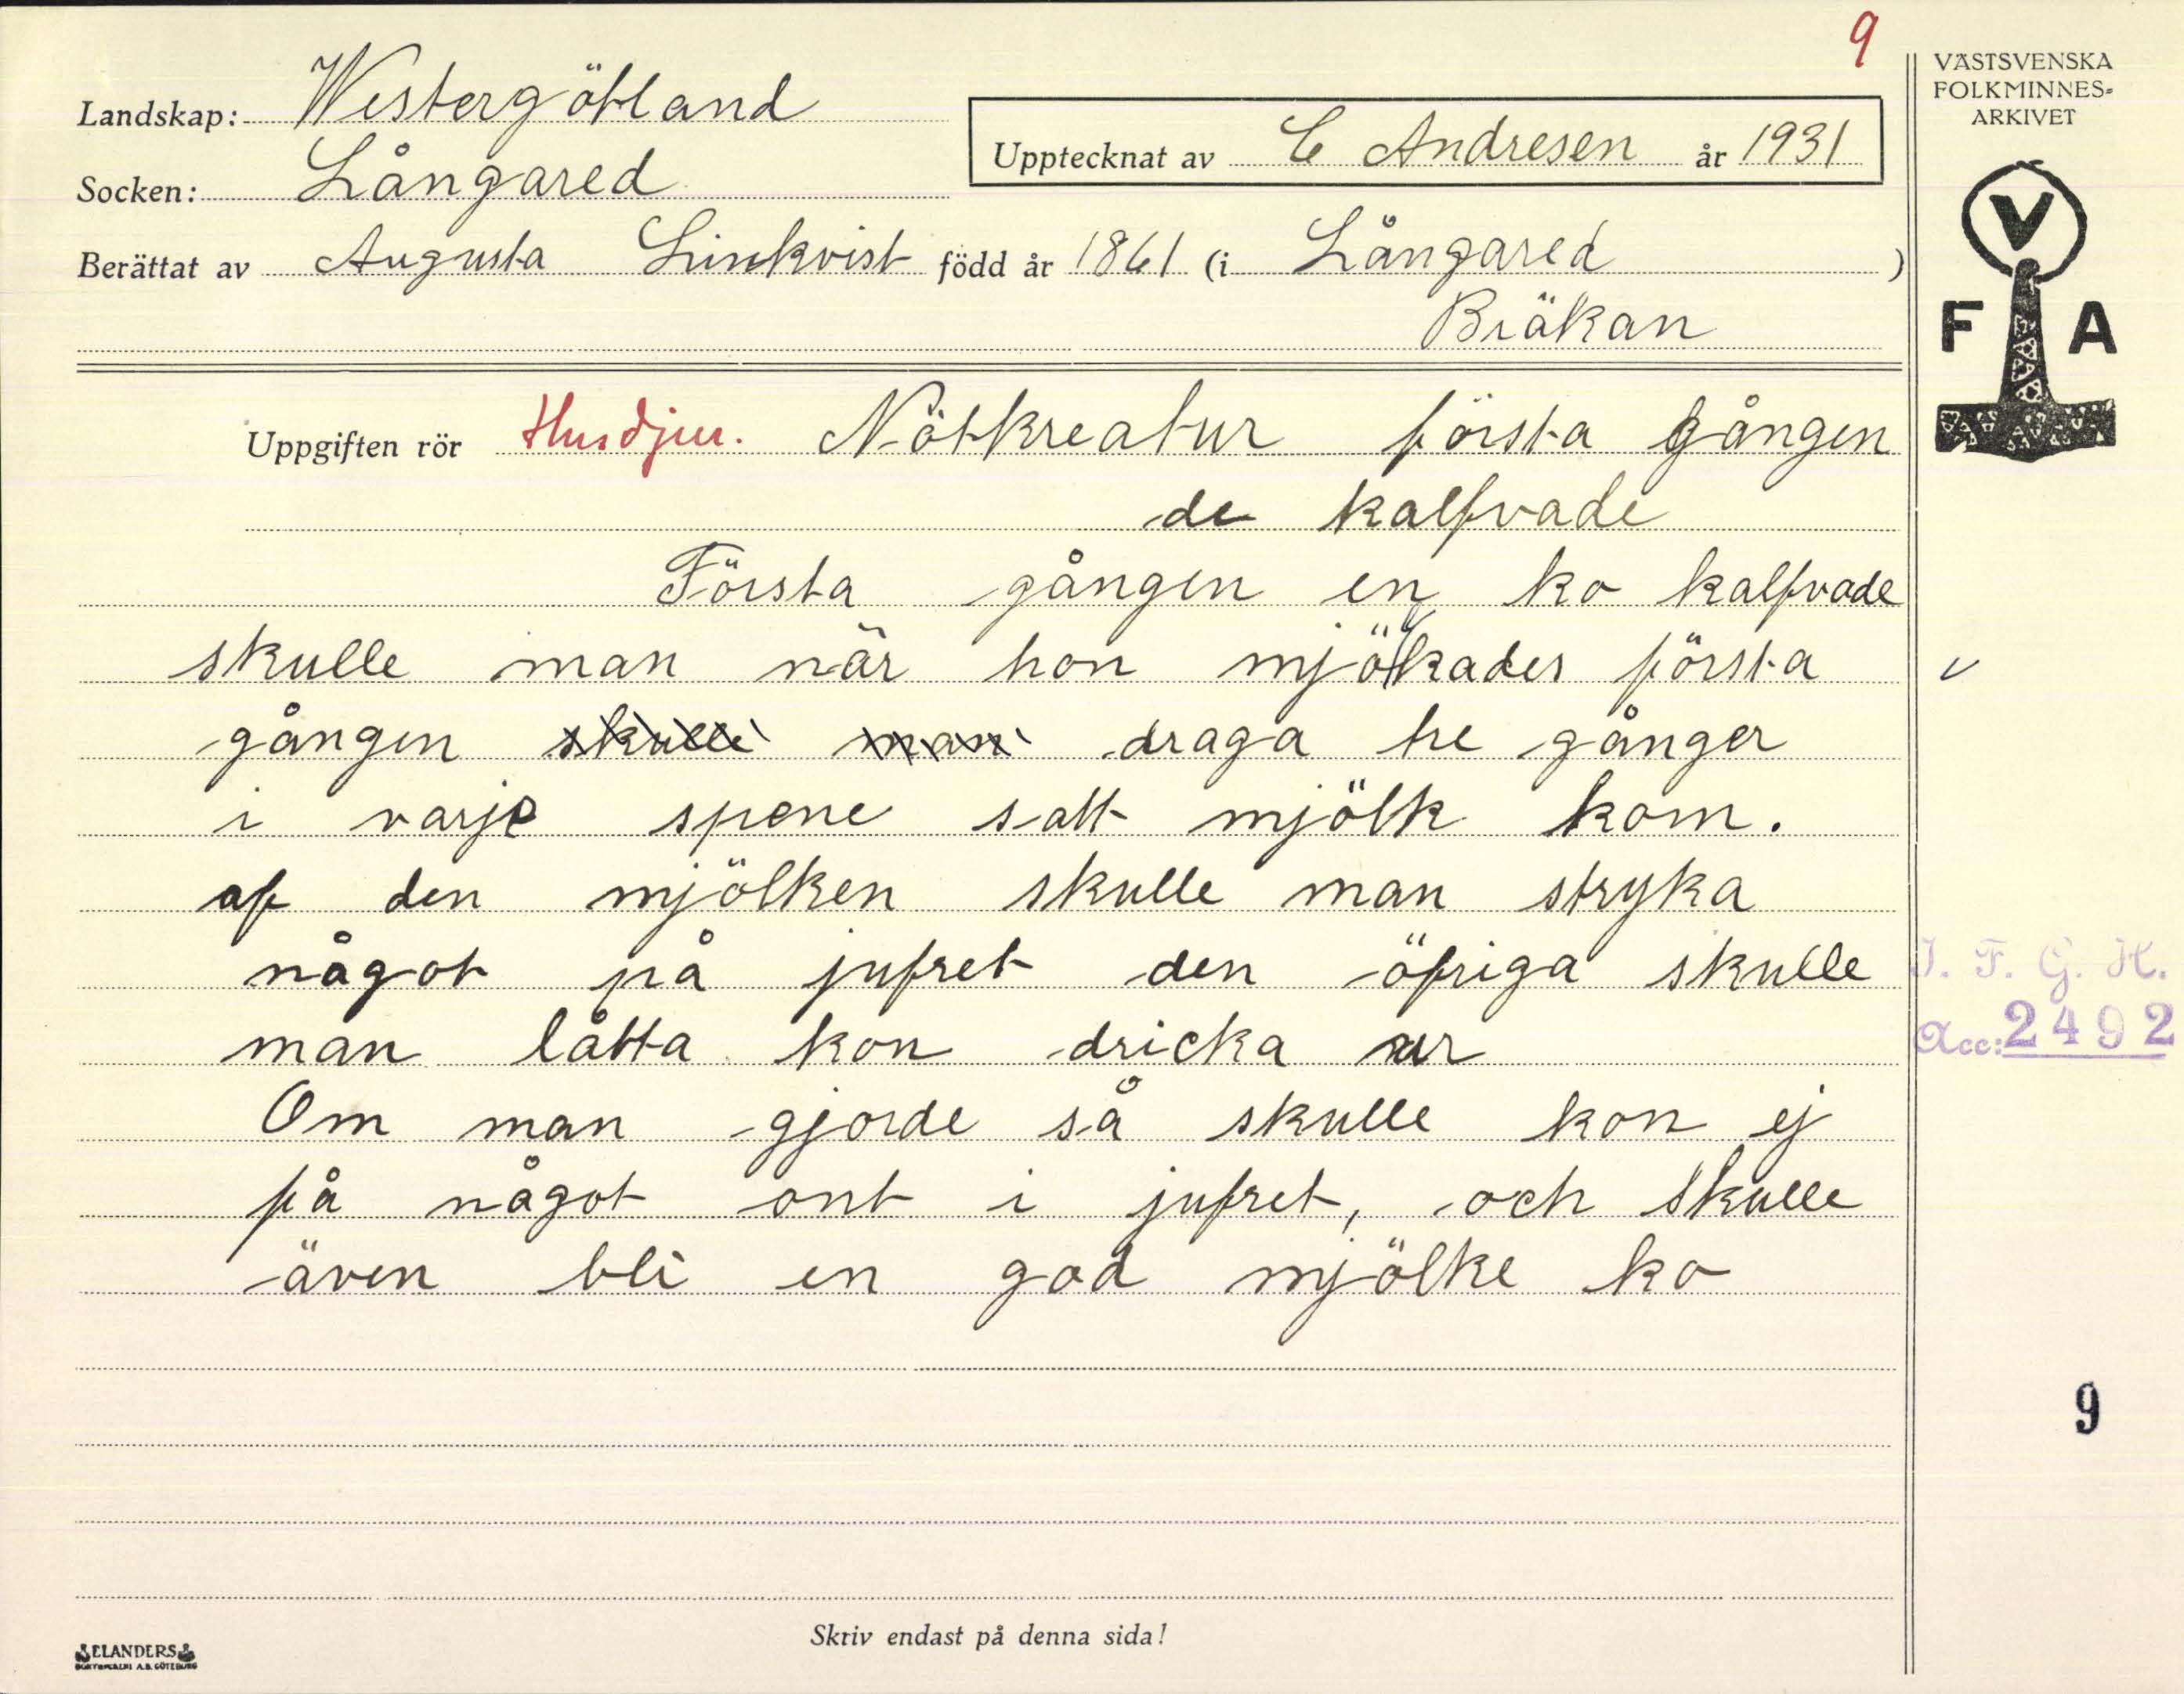 9
VÄSTSVENSKA
FOLKMINNES-
ARKIVET
Landskap: Westergötland
Upptecknat av C Andresen år 1931
Socken: Långared
Berättat av Augusta Linkvist född år 1861 (i Långared)
Bräkan
V
F A
Uppgiften rör Husdjur. Nötkreatur första gången
de kalfvade
Första gången en ko kalfvade
skulle man när hon mjölkades första
gången skulle man draga tre gånger
i varje spene satt mjölk kom.
af den mjölken skulle man stryka
något på jufret den öfriga skulle
man låtta kon dricka ur
Om man gjorde så skulle kon ej
få något ont i jufret, och skulle
även bli en god mjölke ko
I. F. G. H.
Acc: 2492
9
Skriv endast på denna sida!
ELANDERS
BOKTRYCKERI A.B. GÖTEBORG